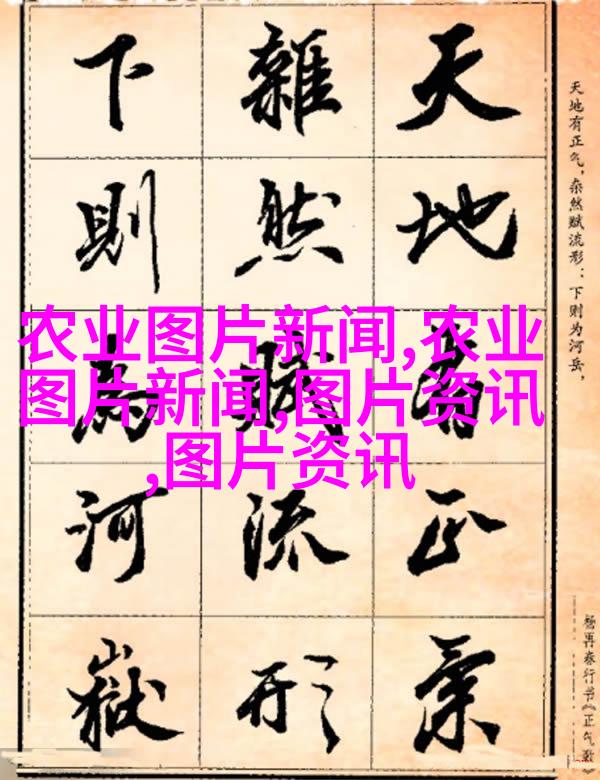 天地有正气，杂然赋流形；下则为河岳，
杨再春行书《正气歌》
天地有正氣
雜然賦流形
下則為河嶽
农业图片新闻,农业
图片新闻,图片资讯
,图片资讯